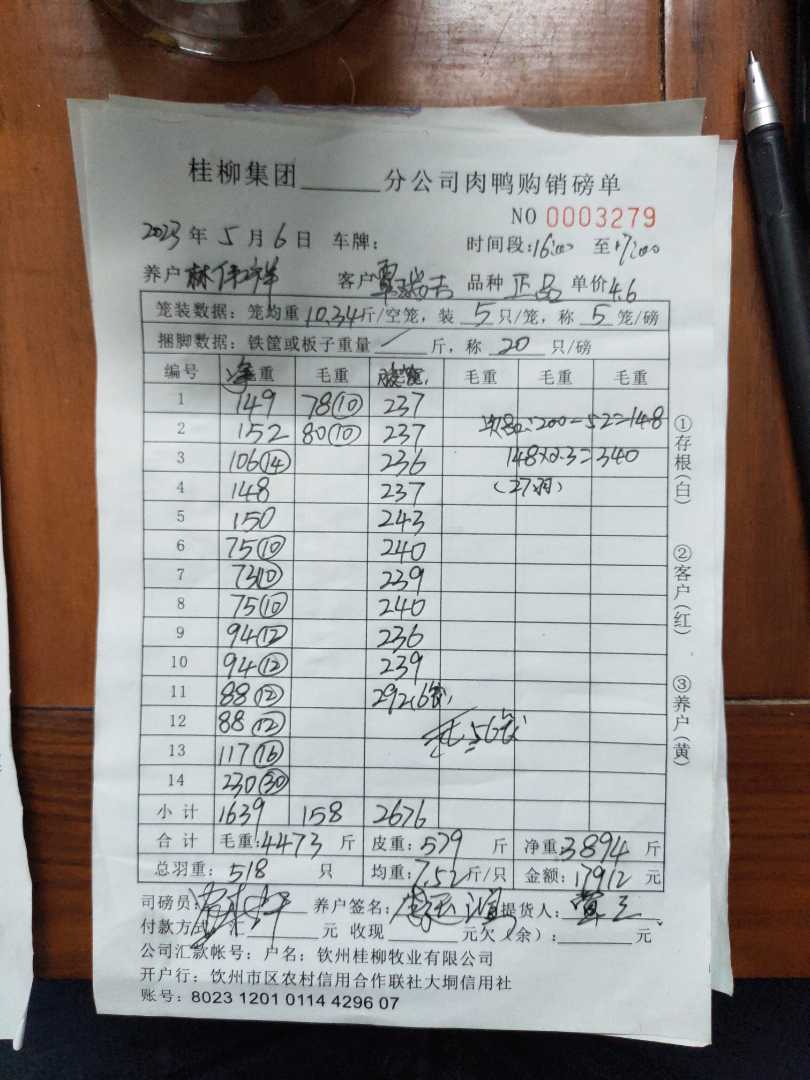 桂柳集团______分公司肉鸭购销磅单
NO 0003279
2023年5月6日 车牌: 时间段:16:00 至17:00
养户 林伟祥 客户 覃瑞吉 品种 正品 单价4.6
笼装数据: 笼均重10.34斤/空笼, 装5只/笼, 称5笼/磅
捆脚数据: 铁筐或板子重量 / 斤, 称20只/磅
编号 净重 毛重 毛重 毛重 毛重
1 149 78⑩ 237
2 152 80⑩ 237 次品:200-52=148
3 106⑭ 236 148×2.3=340
4 148 237 (27羽)
5 150 243
6 75⑩ 240
7 73⑩ 239
8 75⑩ 240
9 94⑫ 236
10 94⑫ 239
11 88⑫ 292,6
12 88⑫ 56
13 117⑯
14 230㉚
小计 1639 158 2676
合计 毛重:4473斤 皮重:579斤 净重:3894斤
总羽重:518只 均重:7.52斤/只 金额:17912元
司磅员: 养户签名: 提货人:
付款方式: 汇______元 收现______元欠(余):______元
公司汇款帐号: 户名: 钦州桂柳牧业有限公司
开户行: 钦州市区农村信用合作联社大垌信用社
账号: 8023 1201 0114 4296 07
①存根(白)
②客户(红)
③养户(黄)